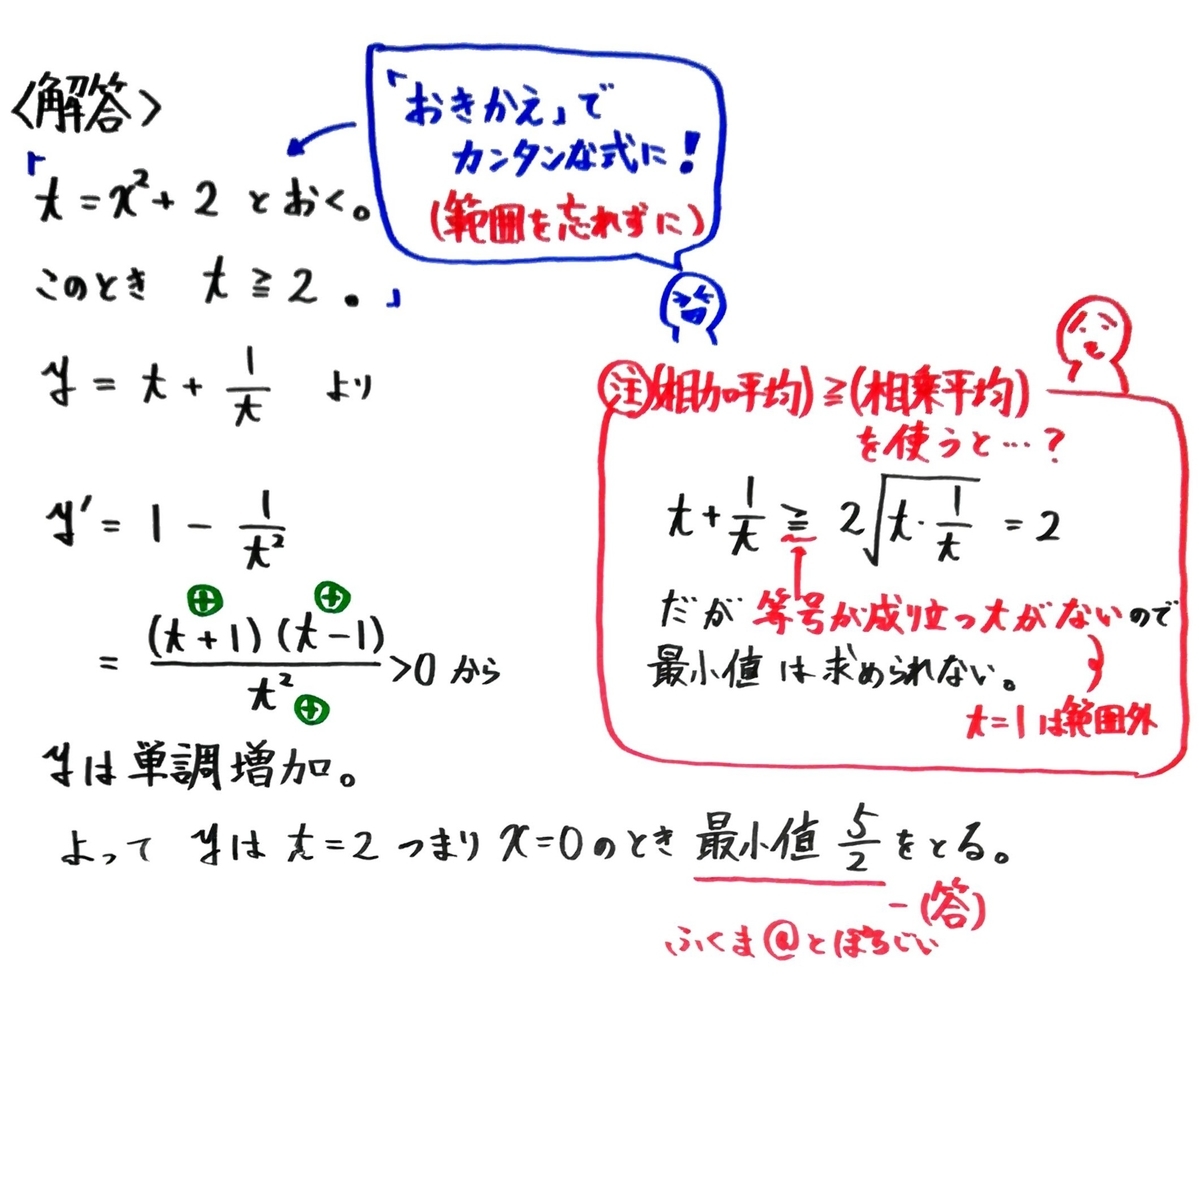 <解答>
「t=x²+2 とおく。
このとき t≧2。」
「おきかえ」で
カンタンな式に!
(範囲を忘れずに)
y = t + 1/t より
y' = 1 - 1/t²
⊕ ⊕
= (t+1)(t-1)/t² >0 から
⊕
yは単調増加。
注 (相加平均)≧(相乗平均)
を使うと…?
t+1/t ≧ 2√(t・1/t) = 2
だが 等号が成り立つtがないので
最小値は求められない。
t=1は範囲外
よって yは t=2 つまり x=0のとき 最小値 5/2 をとる。
-(答)
ふくま@とぽろじい